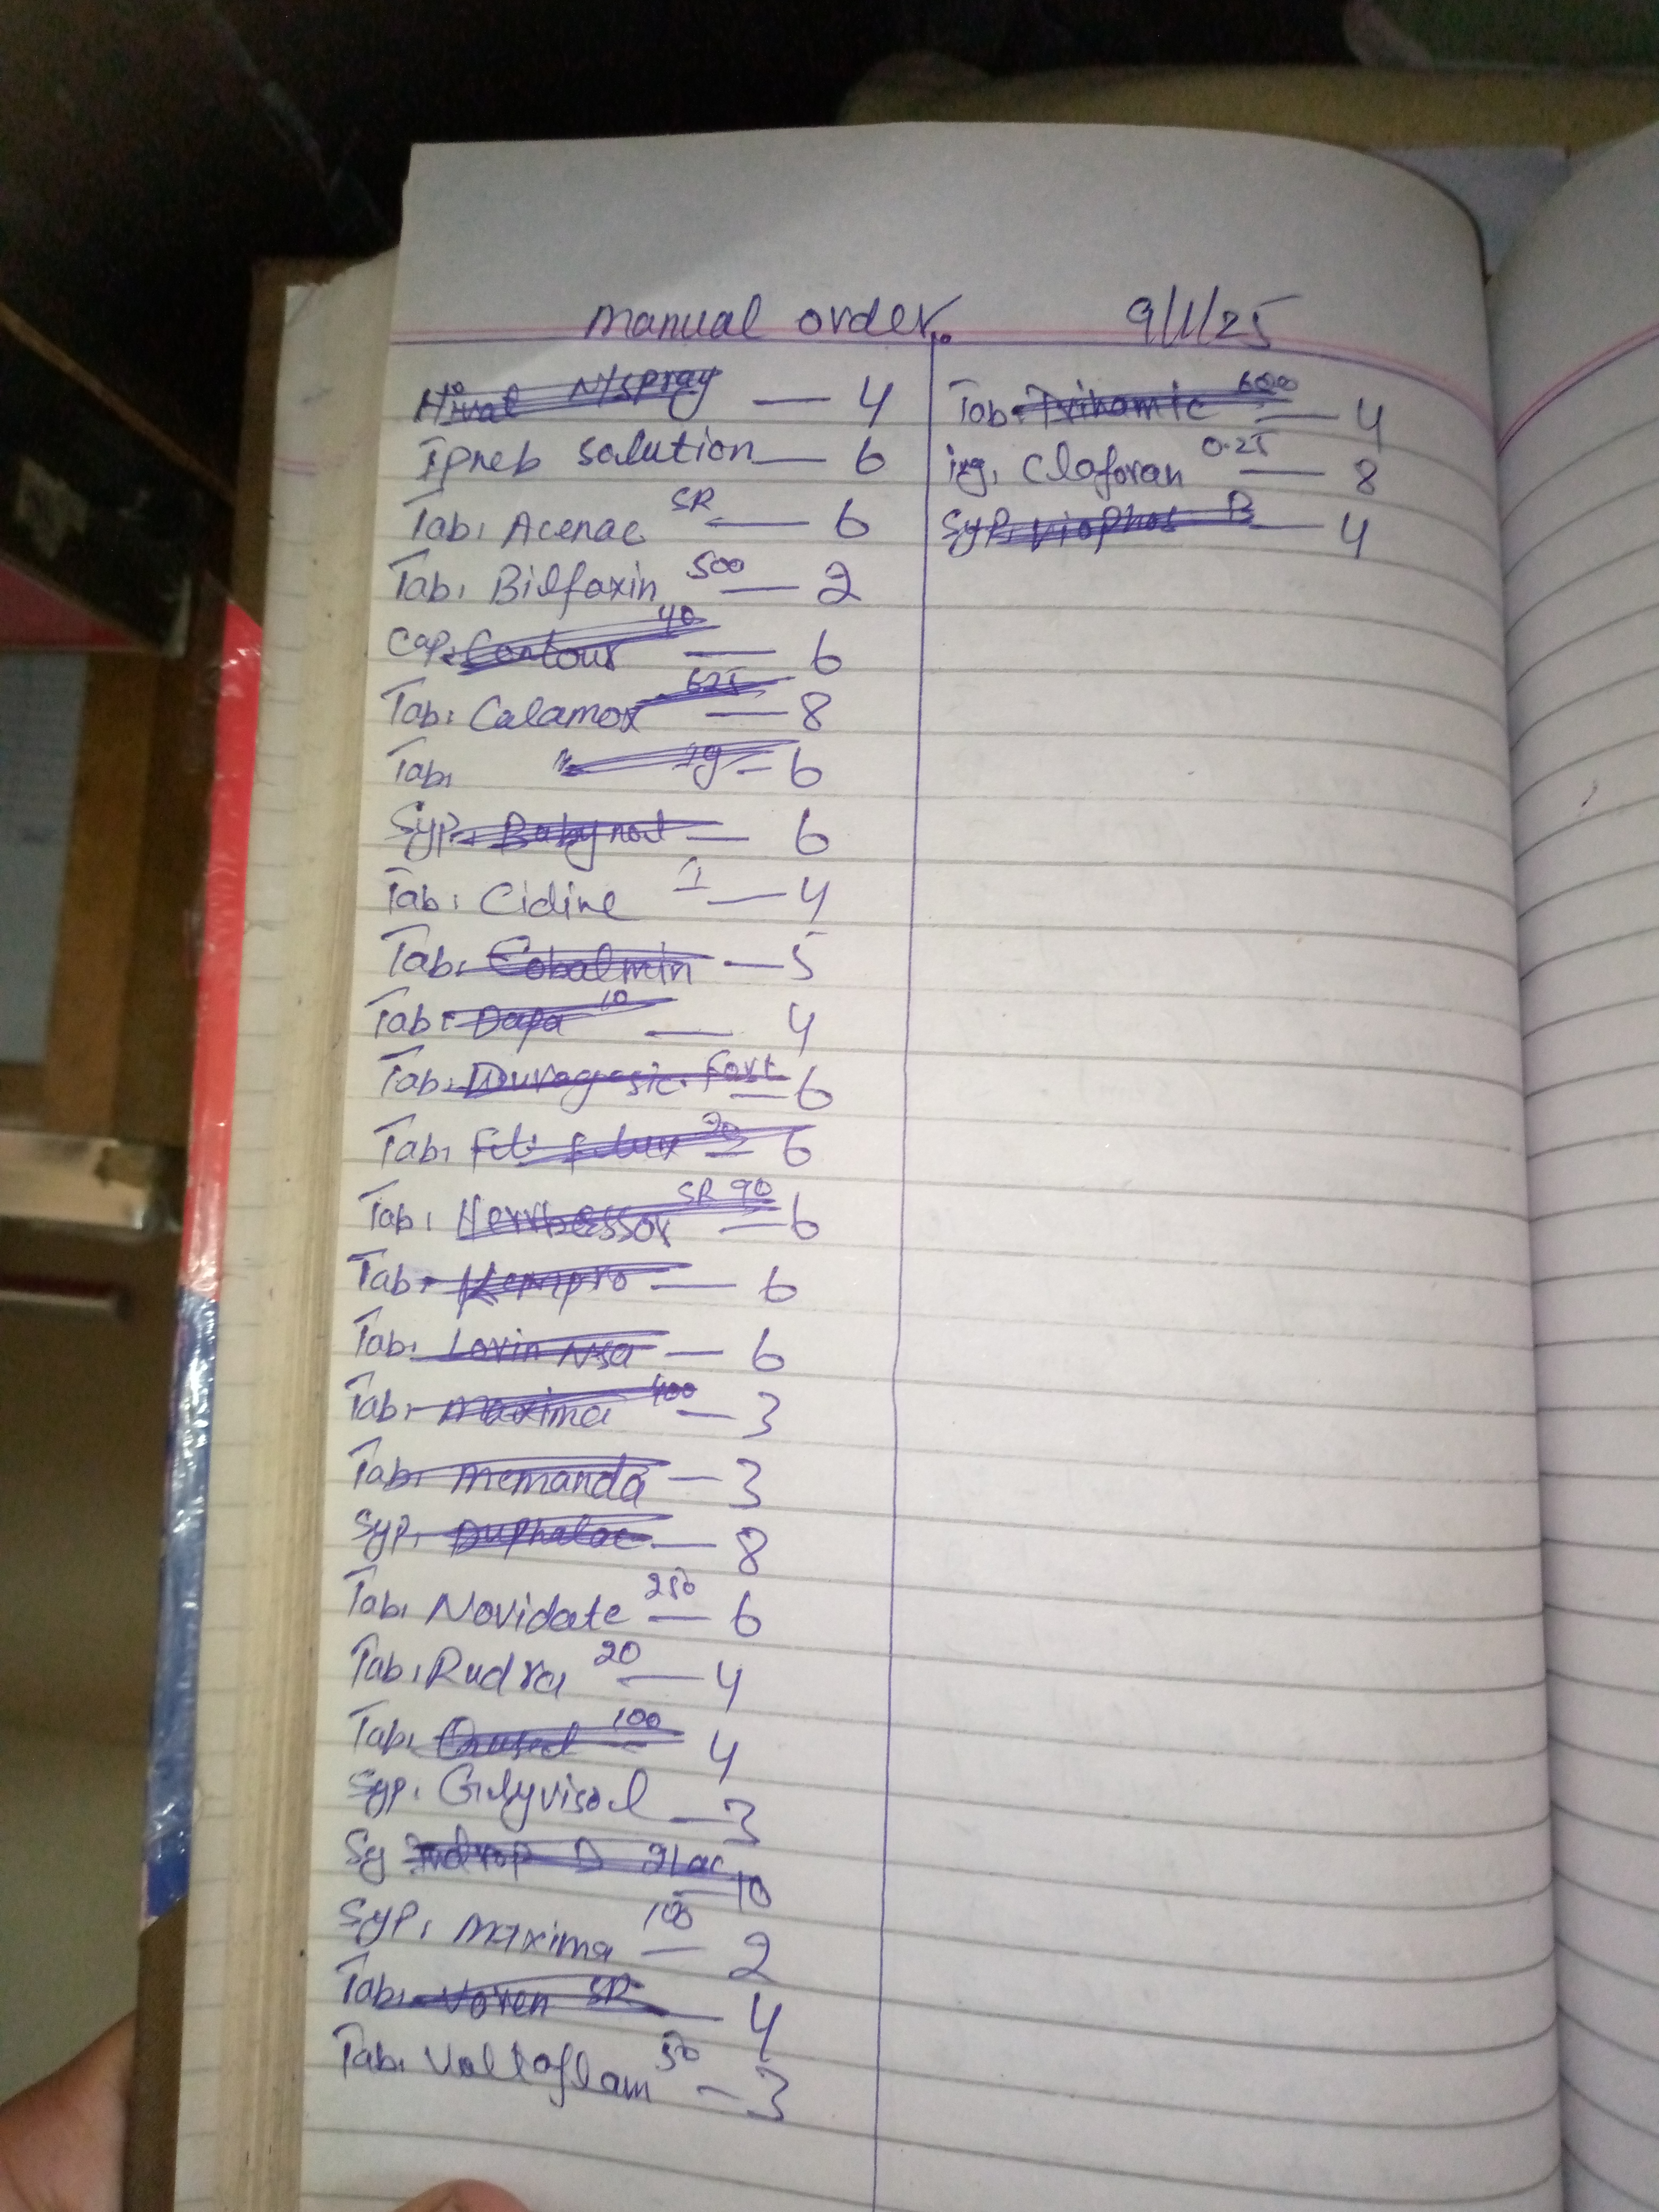 manual order. 9/1/25
Hival N/spray — 4
Ipneb solution — 6
Tab, Acenac SR — 6
Tab, Bilfoxin 500 — 2
Cap, Contour 40 — 6
Tab, Calamox 625 — 8
Tab, " 1g — 6
Syp, Babynol — 6
Tab, Cidine 1 — 4
Tab, Cobalmin — 5
Tab, Dapa 10 — 4
Tab, Duragesic Fort — 6
Tab, 20 — 6
Tab, Herrbessor SR 90 — 6
Tab, Kempro — 6
Tab, Lorin Nsa — 6
Tab, Maxima 400 — 3
Tab, Memanda — 3
Syp, Duphalac — 8
Tab, Novidate 250 — 6
Tab, Rudra 20 — 4
Tab, 100 — 4
Syp, Gulyvisol — 3
Sy D — 10
Syp, Maxima 100 — 2
Tab, Voren SR — 4
Tab, Voltaflam 50 — 3
Tab, Trihamic 600 — 4
inj, Claforan 0.25 — 8
Syp, Viophos B — 4